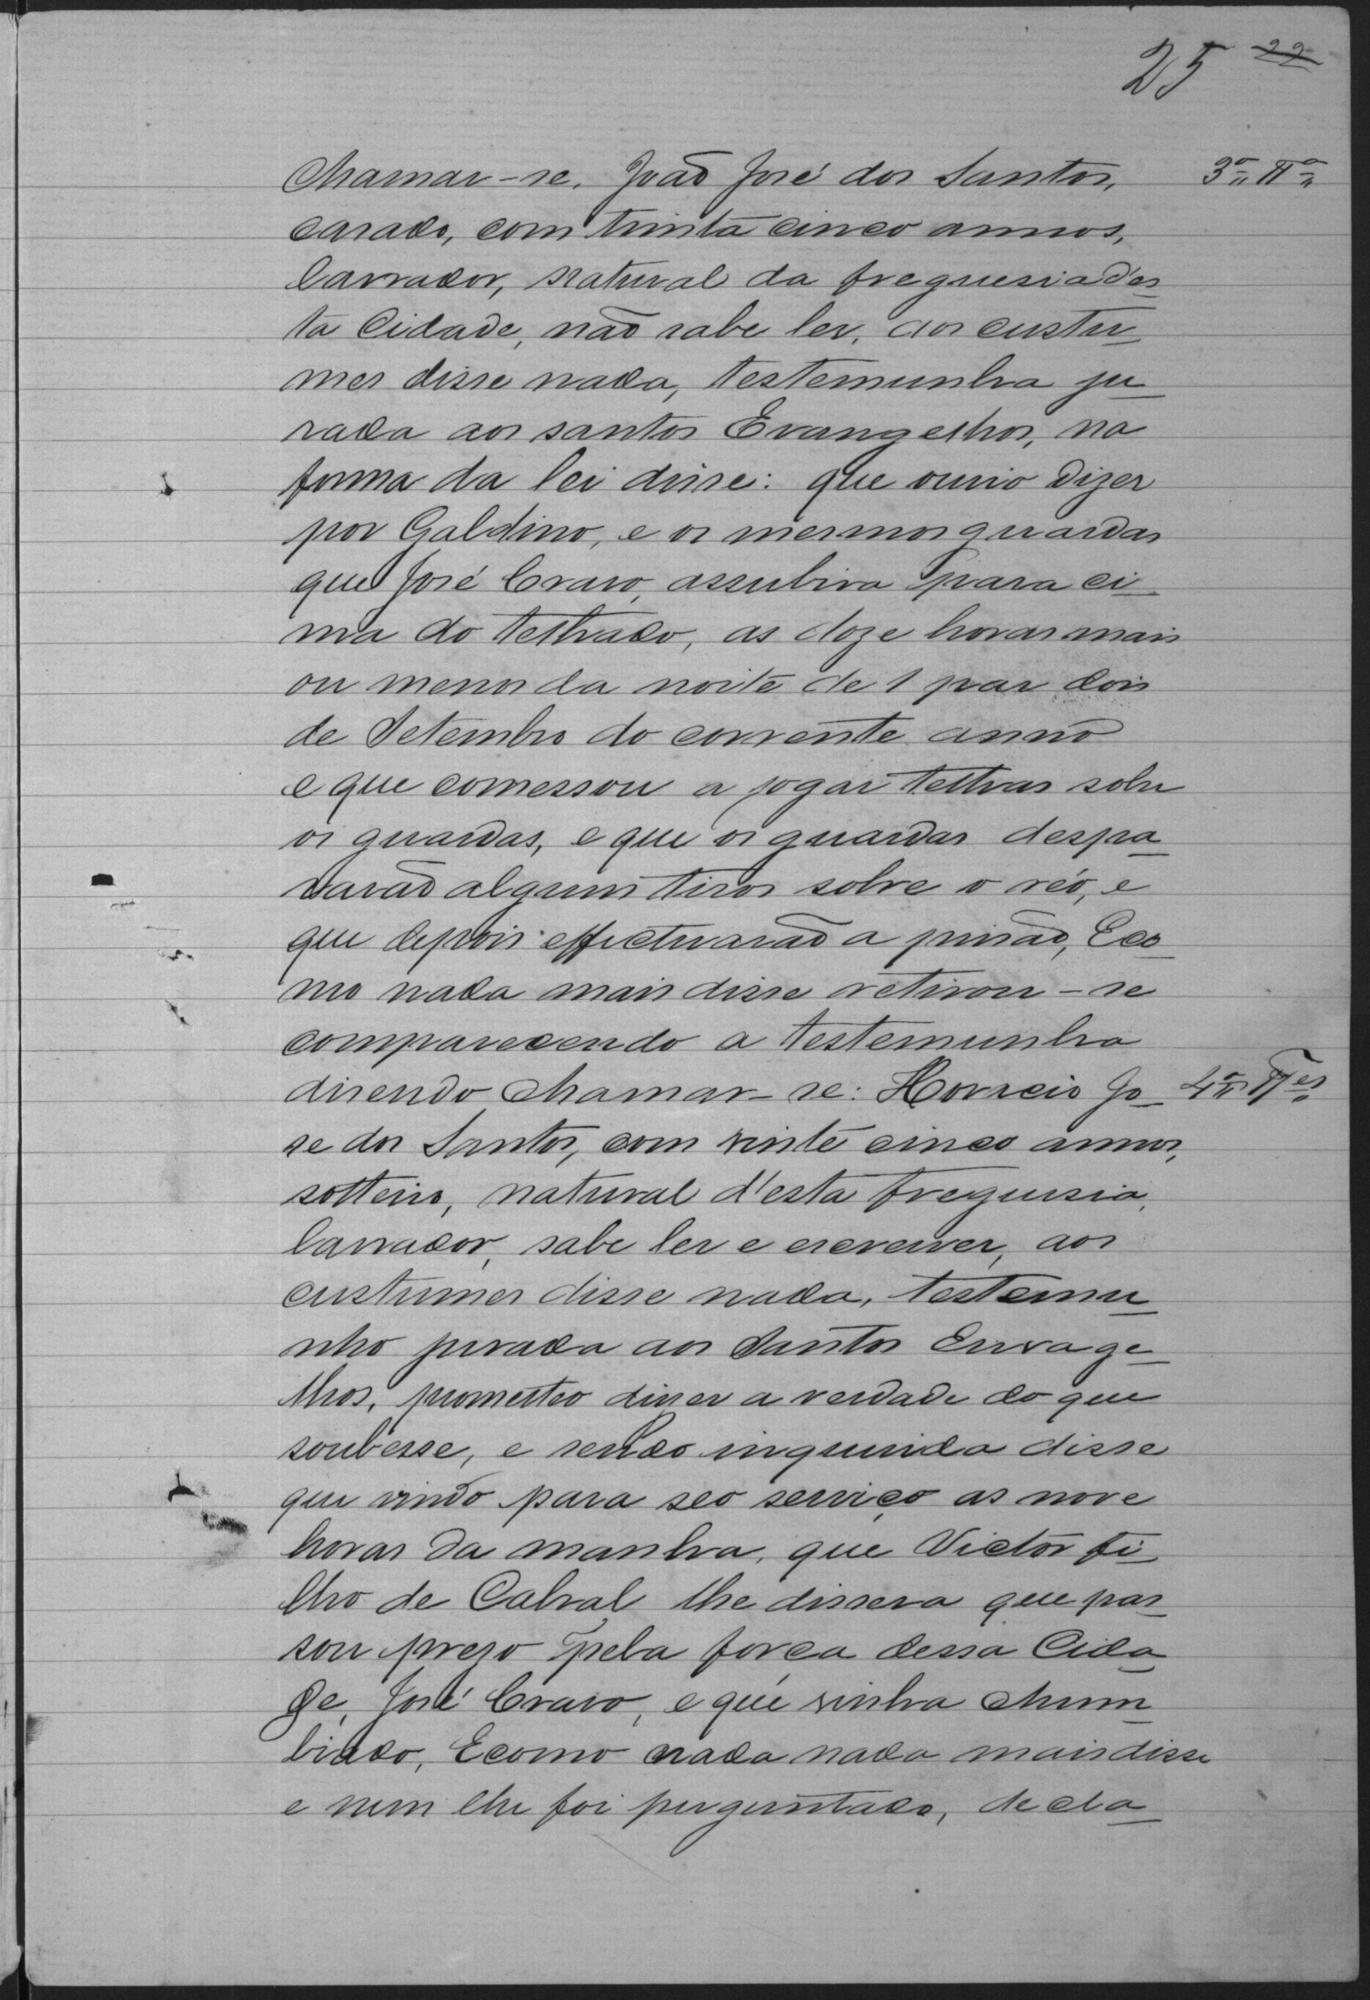 25 22
chamar-se, João José dos Santos, 3ª Tª
casado, com trinta cinco annos,
lavrador, natural da freguesia d'es
ta Cidade, não sabe ler, aos custu
mes disse nada, testemunha ju
rada aos santos Evangelhos, na
forma da lei disse: que ouvio dizer
por Galdino, e os mesmos guardas
que José Cravo, assubira para ci
ma do telhado, as doze horas mais
ou menos da noite de 1 par dois
de Setembro do corrente anno
e que comessou a jogar telhas sobre
os guardas, e que os guardas despa
rarão alguns tiros sobre o réo, e
que depois effectuarão a prisão, Eco
mo nada mais disse retirou-se
comparecendo a testemunha
disendo chamar-se: Horacio Jo 4ª Tes
se dos Santos, com vinte cinco annos,
solteiro, natural d'esta freguesia,
lavrador, sabe ler e escrever, aos
custumes disse nada, testemu
nho jurada aos Santos Envage
lhos, prometteo dizer a verdade do que
soubesse, e sendo inquirida disse
que vindo para seo serviço as nove
horas da manhã, que Victor fi
lho de Cabral lhe dissera que pas
sou prezo pela força dessa Cida
de, José Cravo, e que vinha chum
biado, Ecomo nada nada mais disse
e nem lhe foi perguntado, decla